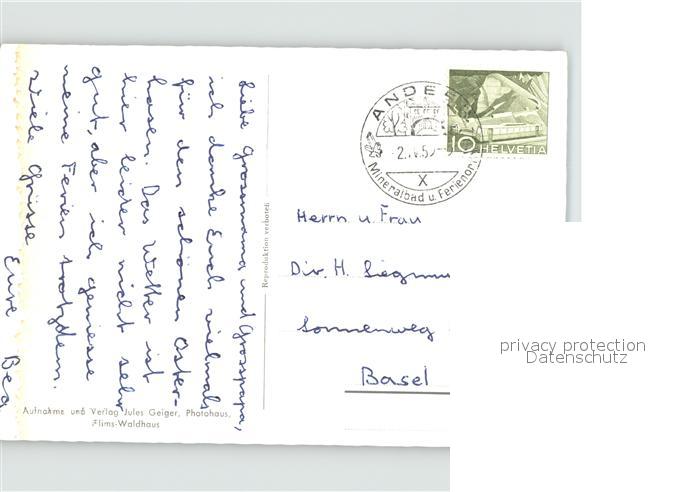 Liebe Grossmama und Grosspapa,
ich danke Euch vielmals
für den schönen Oster-
hasen. Das Wetter ist
hier leider nicht sehr
gut, aber ich geniesse
meine Ferien trotzdem.
Viele Grüsse
Eure Bea
Reproduktion verboten
Aufnahme und Verlag Jules Geiger, Photohaus,
Flims-Waldhaus
ANDEE
X
Mineralbad u. Ferienor
10 HELVETIA
Herrn u. Frau
Dir. H. Siegmu
Sonnenweg
Basel
privacy protection
Datenschutz